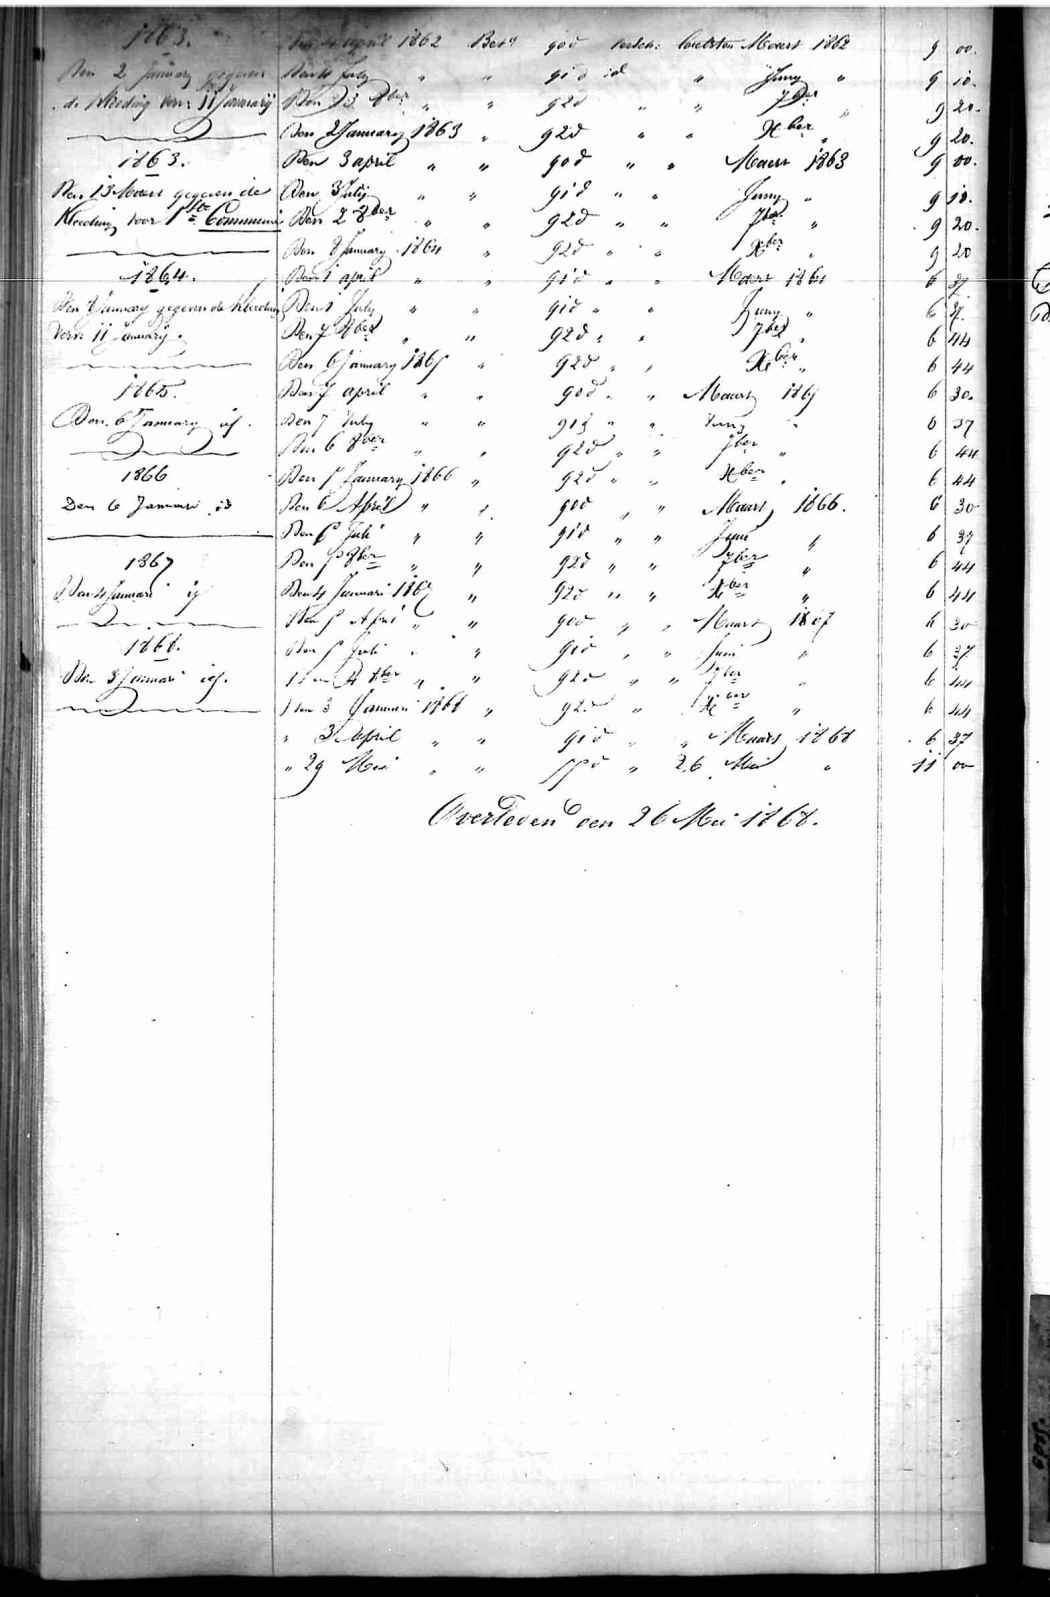 1863.
Den 2 January gegeven
de kleeding voor 11 January
1863.
Den 13 Maart gegeven de
kleeding voor 1ste Communie
1864.
Den 8 January gegeven de kleeding
voor 11 January.
1865.
Den 6 January id.
1866
Den 6 Januari id
1867
Den 4 Januari id
1868.
Den 3 Januari id.
april 1862 Bet. 90d versch: laetsten Maart 1862 9 00.
Den 4 July " " 91d id " Juny " 9 10.
Den 3 8ber " " 92d " " 7ber " 9 20.
Den 2 January 1863 " 92d " " Xber " 9 20.
Den 3 april " " 90d " " Maert 1863 9 00.
Den 3 July " " 91d " " Juny " 9 10.
Den 2 8ber " " 92d " " 7ber " 9 20.
Den 8 January 1864 " 92d " " Xber " 9 20
Den 1 april " " 91d " " Maert 1864 6 37
Den 1 July " " 91d " " Juny " 6 37.
Den 7 8ber " " 92d " " 7ber " 6 44
Den 6 January 1865 " 92d " " Xber " 6 44
Den 7 april " " 90d " " Maart 1865 6 30.
Den 7 July " " 91d " " Juny " 6 37
Den 6 8ber " " 92d " " 7ber " 6 44
Den 5 January 1866 " 92d " " Xber " 6 44
Den 6 April " " 90d " " Maart 1866. 6 30
Den 6 Juli " " 91d " " Juni " 6 37
Den 5 8ber " " 92d " " 7ber " 6 44
Den 4 Januari 1867 " 92d " " Xber " 6 44
Den 5 April " " 90d " " Maart 1867 6 30
Den 5 Juli " " 91d " " Juni " 6 37
Den 4 8ber " " 92d " " 7ber " 6 44
Den 3 Januari 1868 " 92d " Xber " 6 44
" 3 April " " 91d " " Maart 1868 6 37
" 29 Mei " " 55d " 26 Mei " 11 00
Overleden den 26 Mei 1868.